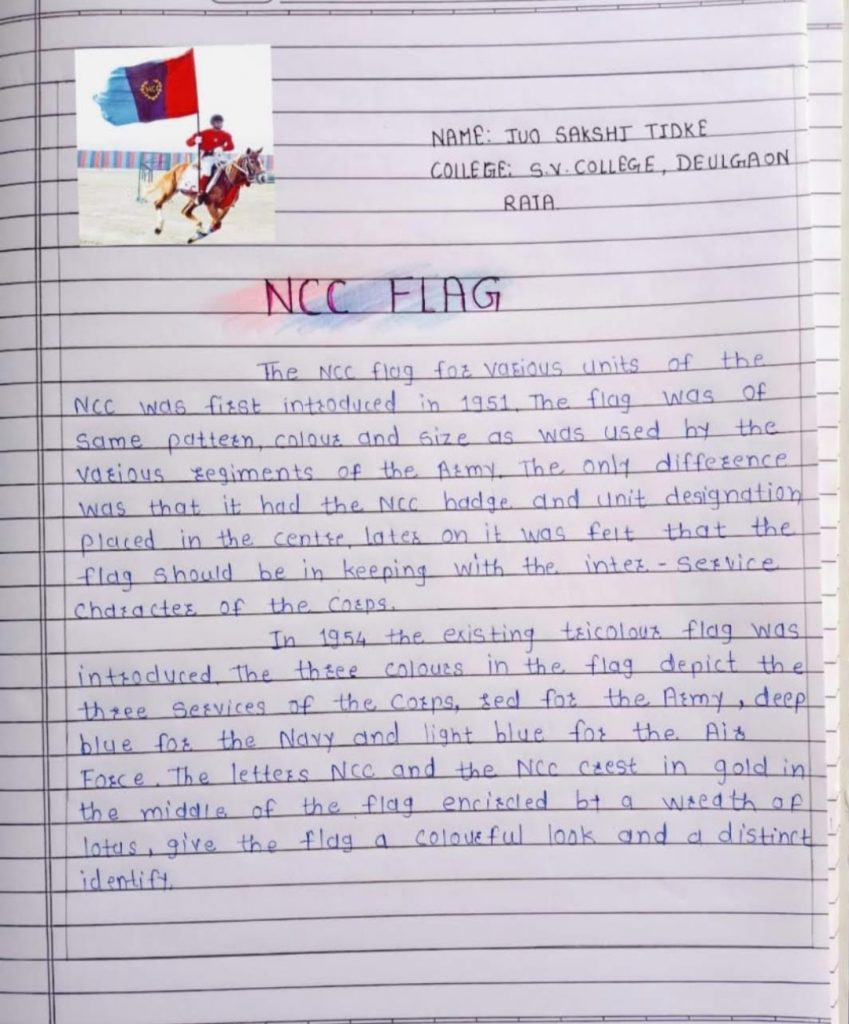 NAME: JUO SAKSHI TIDKE
COLLEGE: S.V. COLLEGE, DEULGAON
RAJA
NCC FLAG
The NCC flag for various units of the
NCC was first introduced in 1951. The flag was of
same pattern, colour and size as was used by the
various regiments of the Army. The only difference
was that it had the NCC badge and unit designation
placed in the centre. later on it was felt that the
flag should be in keeping with the inter - service
character of the Corps.
In 1954 the existing tricolour flag was
introduced. The three colours in the flag depict the
three services of the Corps, red for the Army, deep
blue for the Navy and light blue for the Air
Force. The letters NCC and the NCC crest in gold in
the middle of the flag encircled bt a wreath of
lotus, give the flag a colourful look and a distinct
identify.